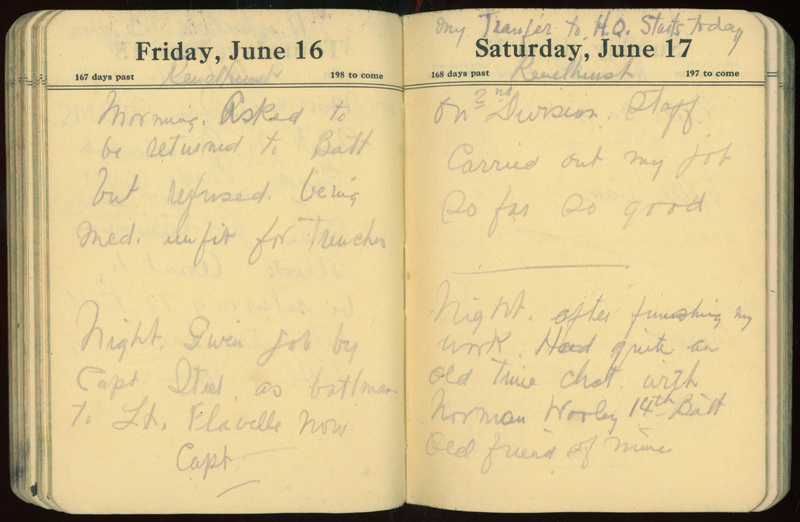 Friday, June 16
167 days past 198 to come
Renelhurst
Morning. Asked to
be returned to Batt
but refused. being
Med. unfit for Trenches
Night. Given job by
Capt as battman
To Lt. Flavelle now
Capt
My Tranfer to H.Q. Starts today
Saturday, June 17
168 days past 197 to come
Renelhurst
On 2nd Division. Staff
Carried out my job
So far so good
Night. after finishing my
work. Had quite an
old time chat with
Norman Worley 14th Batt
Old friend of mine